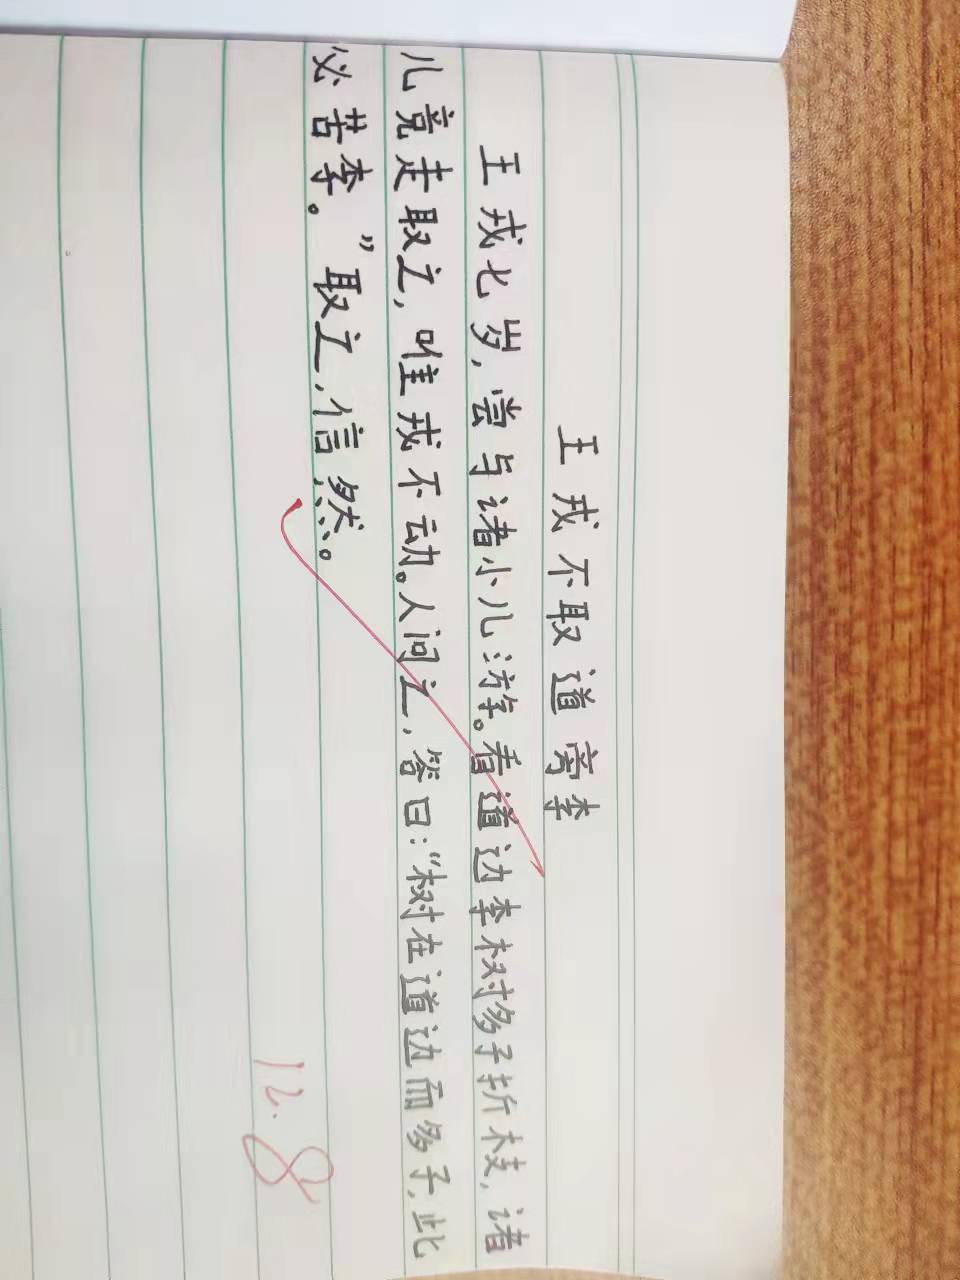 王戎不取道旁李
王戎七岁,尝与诸小儿游。看道边李树多子折枝,诸
儿竞走取之,唯戎不动。人问之,答曰:“树在道边而多子,此
必苦李。”取之,信然。
12.8